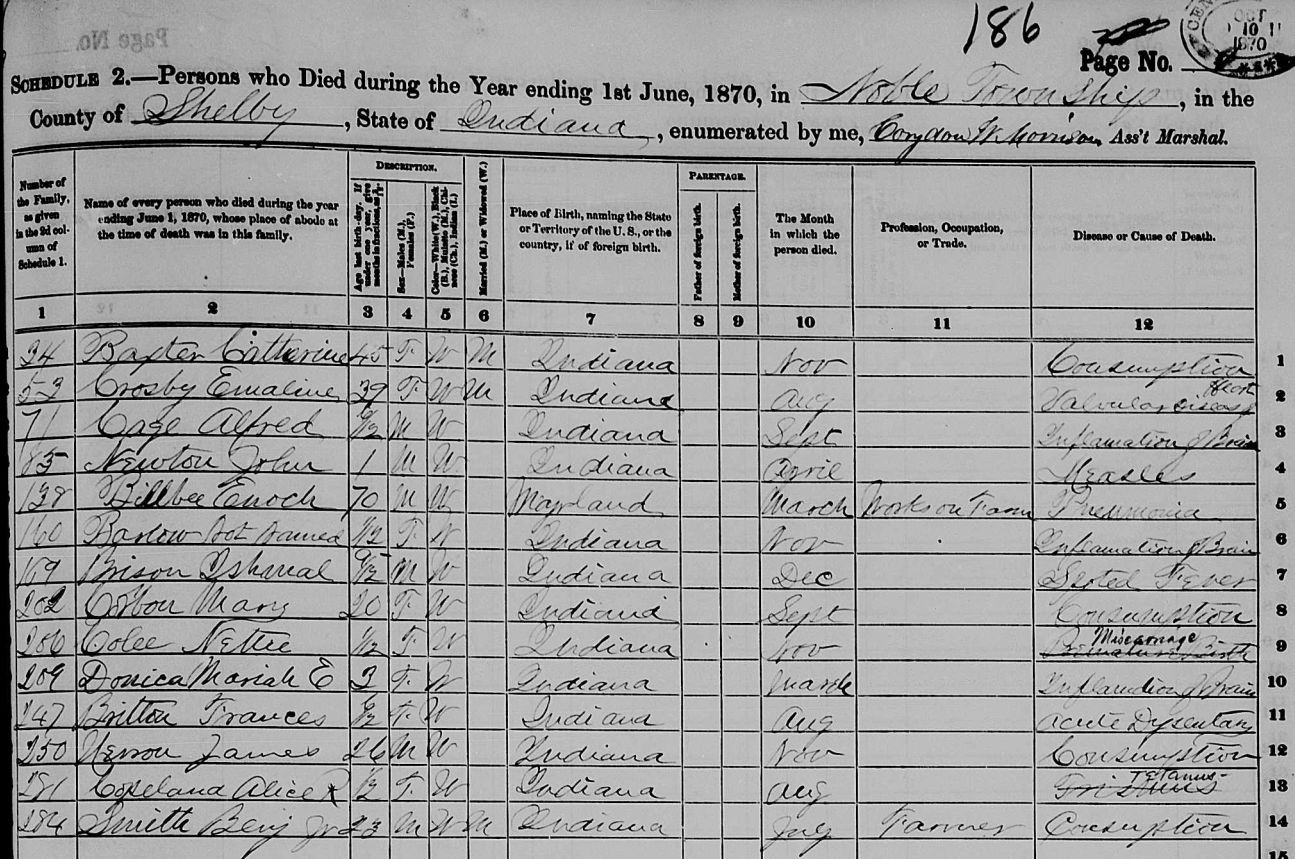 186
Page No.
OCT 10 1870
SCHEDULE 2.—Persons who Died during the Year ending 1st June, 1870, in Noble Township, in the
County of Shelby, State of Indiana, enumerated by me, Corydon W. Morrison Ass't Marshal.
Number of the Family, as given in the 2d column of Schedule 1.
Name of every person who died during the year ending June 1, 1870, whose place of abode at the time of death was in this family.
DESCRIPTION.
Age last birth-day. If under one year, give months in fractions, as
Sex—Males (M.), Females (F.)
Color—White (W.), Black (B.), Mulatto (M.), Chinese (Ch.), Indian (I.)
Married (M.) or Widowed (W.)
Place of Birth, naming the State or Territory of the U. S., or the country, if of foreign birth.
PARENTAGE.
Father of foreign birth.
Mother of foreign birth.
The Month in which the person died.
Profession, Occupation, or Trade.
Disease or Cause of Death.
1 2 3 4 5 6 7 8 9 10 11 12
34 Baxter Catherine 45 F W M Indiana Nov Consumption 1
53 Crosby Emaline 39 F W M Indiana Aug Valvular Disease Heart 2
71 Cage Alfred M W Indiana Sept Inflamation of Brain 3
85 Newton John 1 M W Indiana April Measles 4
138 Billbee Enoch 70 M W Maryland March Works on Farm Pneumonia 5
160 Barlow Not Named F W Indiana Nov Inflamation of Brain 6
169 Brison Ishmal M W Indiana Dec Spoted Fever 7
202 Mary 20 F W Indiana Sept Consumption 8
206 Colee Nettie F W Indiana Nov Miscarriage Premature Birth 9
209 Donica Mariah E 3 F W Indiana March Inflamation of Brain 10
247 Britton Frances F W Indiana Aug Acute Dysentary 11
250 James 26 M W Indiana Nov Consumption 12
281 Copeland Alice R F W Indiana Aug Tetanus Trismus 13
284 Smith Benj Jr 23 M W M Indiana July Farmer Consuption 14
15